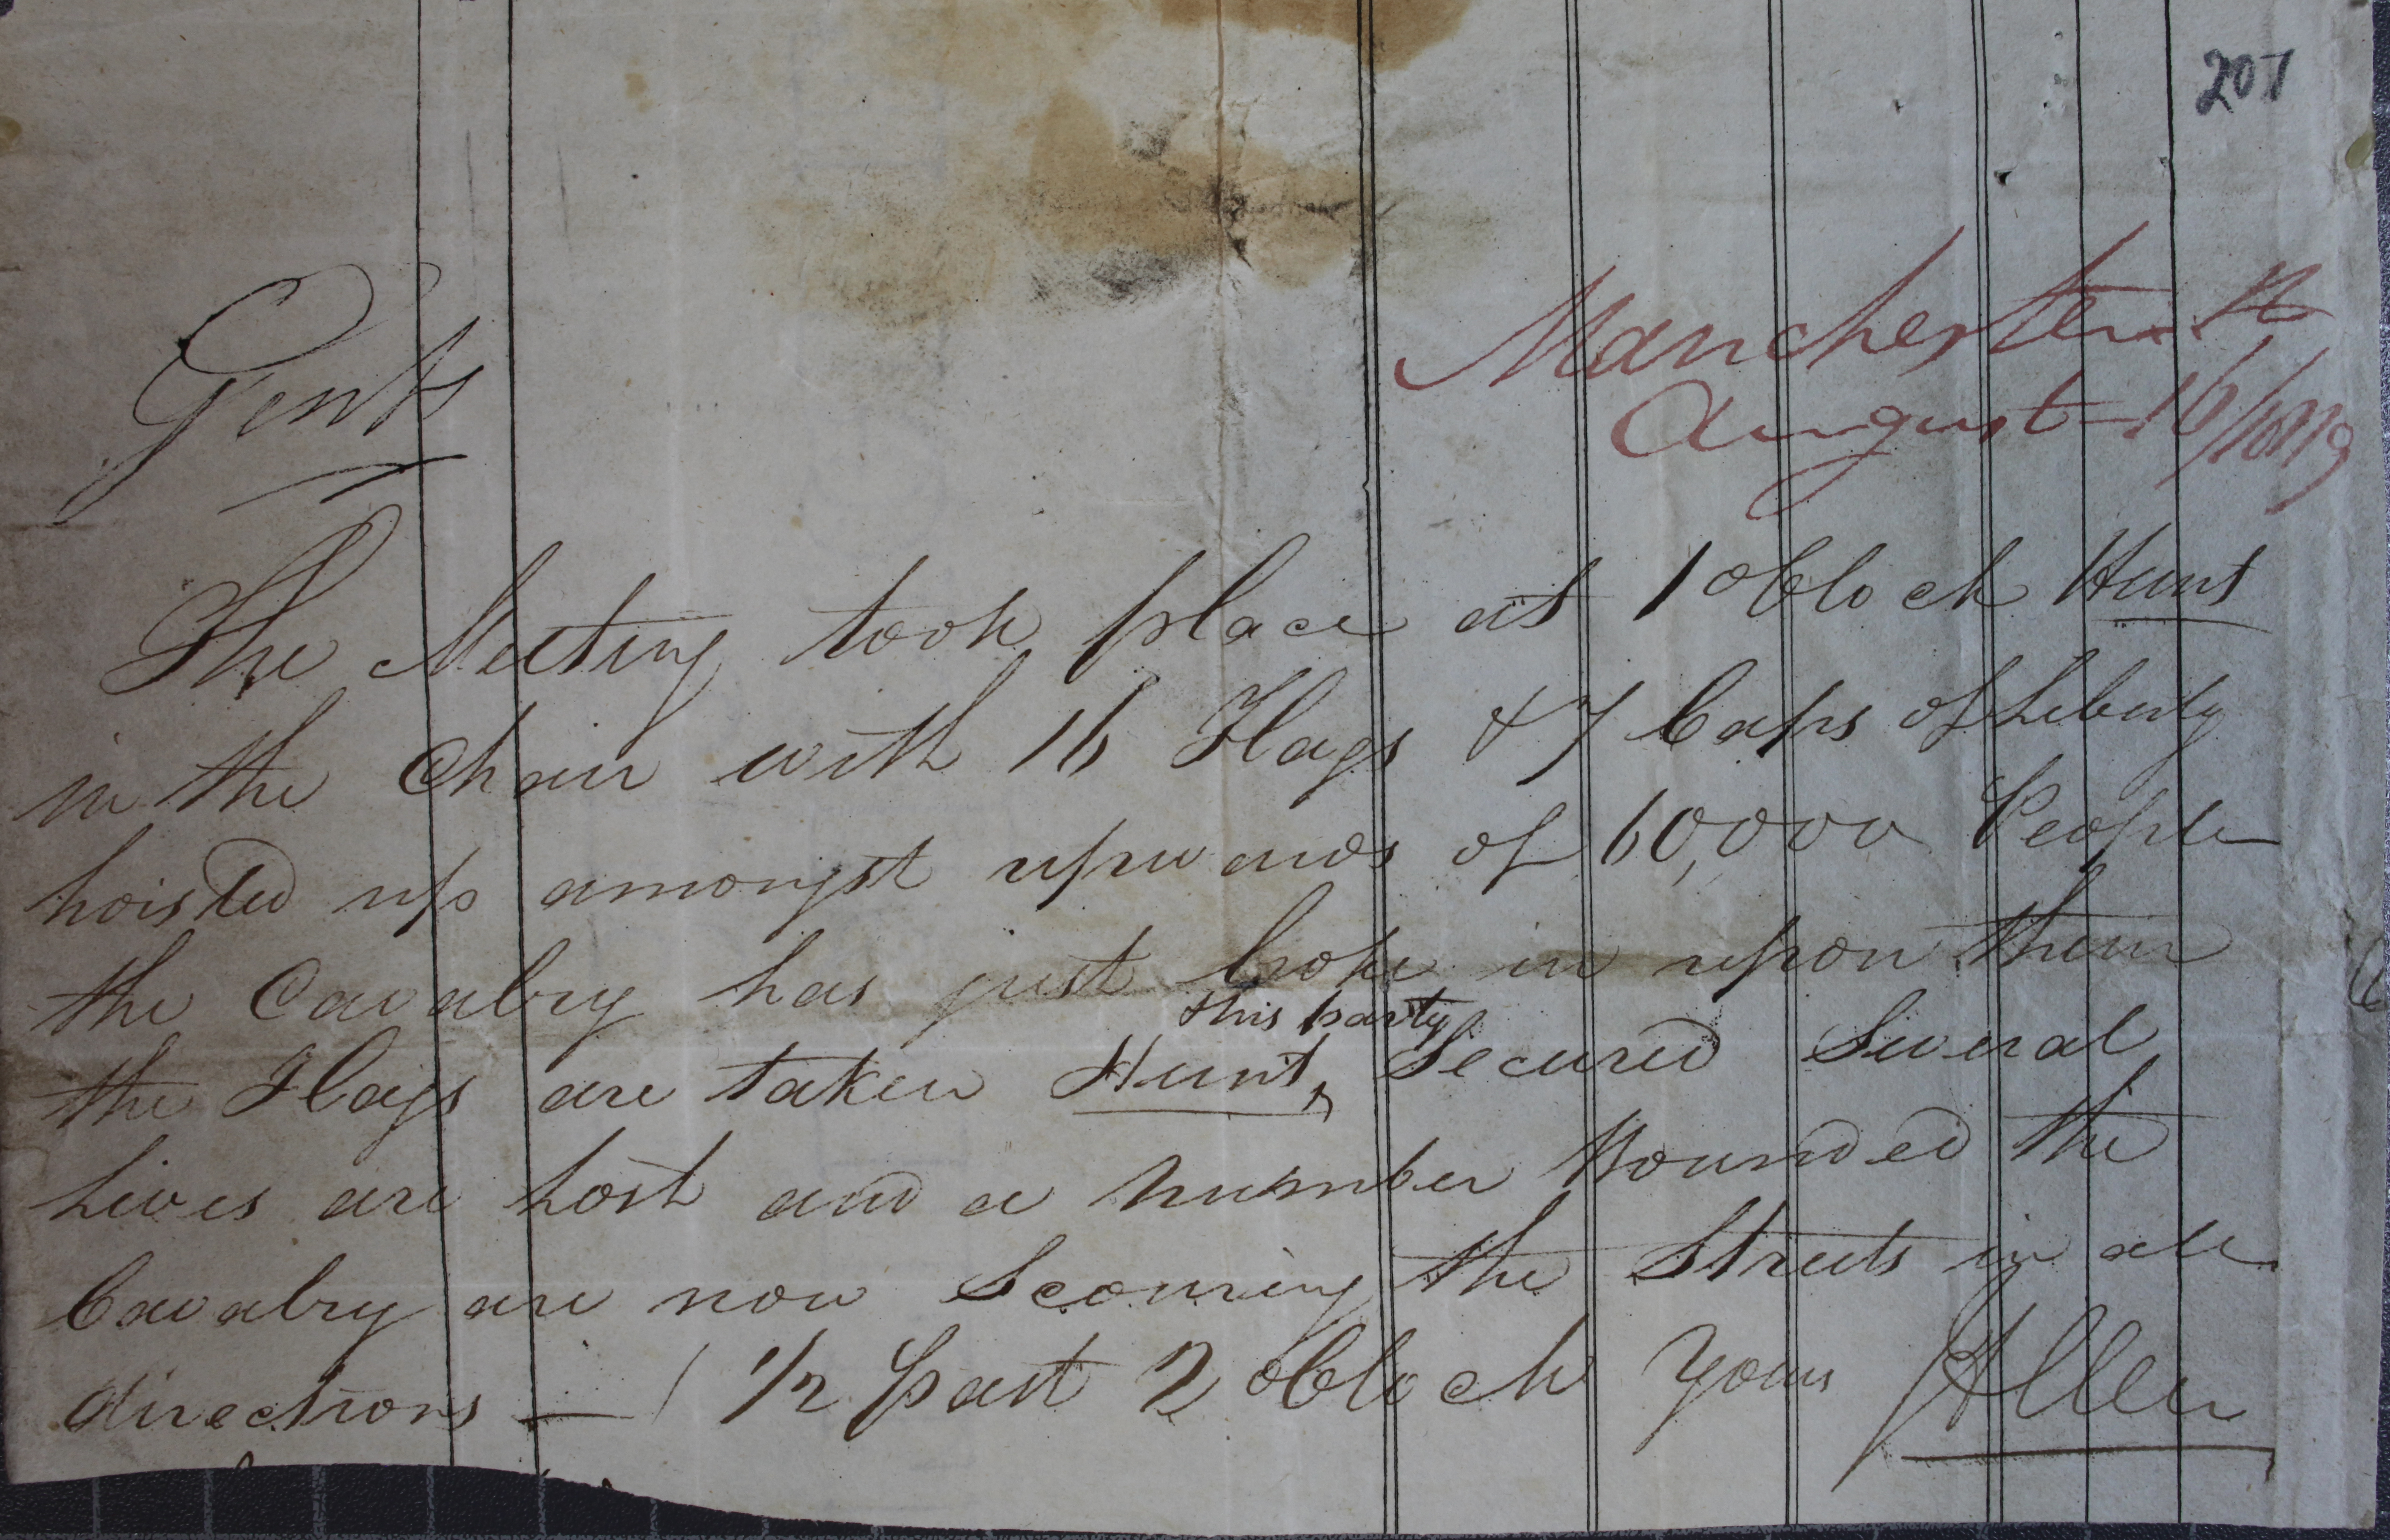 207
Manchester
August 16/1819
Gents
The Meeting took place at 1 oClock Hunt
in the Chair with 16 Flags & 7 Caps of Liberty
hoisted up amongst upwards of 60,000 People
the Cavalry has just broke in upon them
this party
the Flags are taken Hunt Secured Several
Lives are Lost and a number Wounded the
Cavalry are now Scouring the Streets in all
directions — 1/2 past 2 oClock Yours JAllen